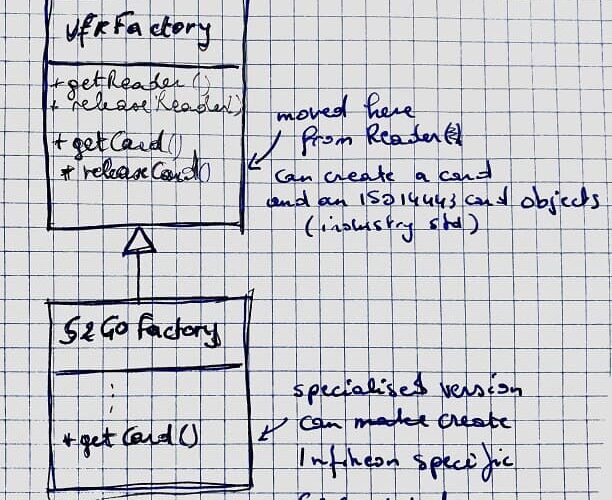 VfRFactory
+ getReader()
+ releaseReader()
+ getCard()
+ releaseCard()
moved here
from Reader
can create a card
and an ISO14443 card objects
(industry std)
S2GO Factory
+ getCard()
specialised version
can make create
Infineon specific